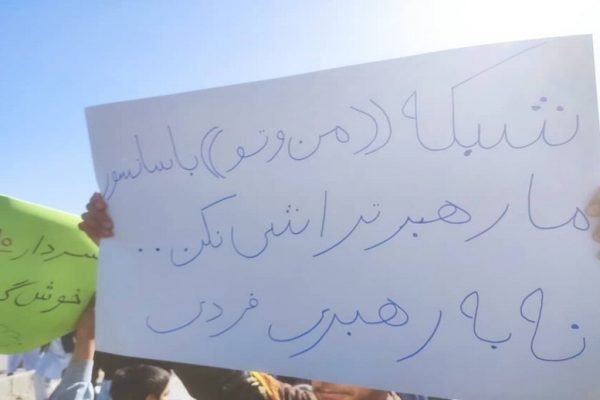 شبکه ((من و تو)) با سانسور
ما رهبر تراشی نکن..
نه به رهبری فردی
سردار
خوش